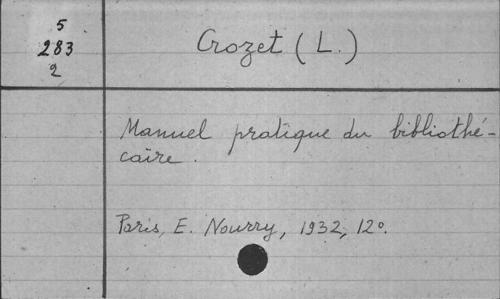 5
283
2
Crozet (L.)
Manuel pratique du bibliothé-
caire.
Paris, E. Nourry, 1932, 12°.